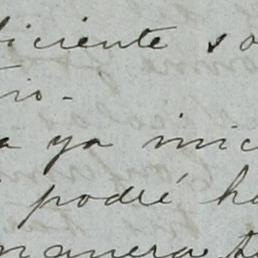 iciente so
rio-
a ya inic
podré ha
manera t